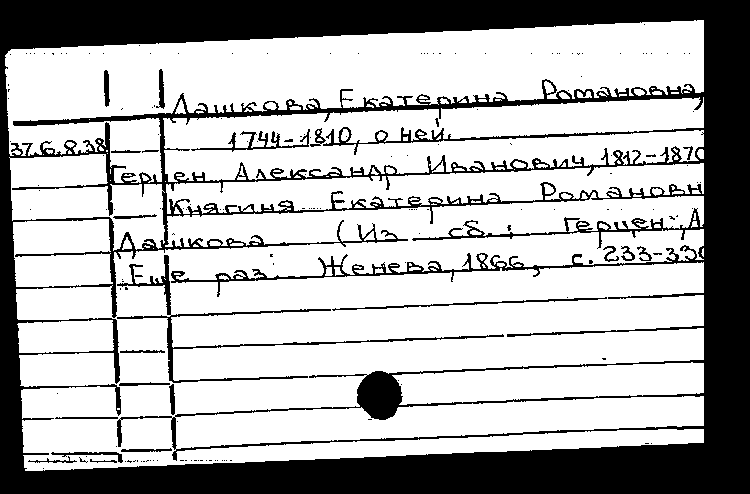 Дашкова, Екатерина Романовна,
1744-1810, о ней.
37.6.8.38
Герцен, Александр Иванович, 1812-1870
Княгиня Екатерина Романовн
Дашкова. (Из сб.: Герцен, А.
Еще раз. Женева, 1866, с. 233-330